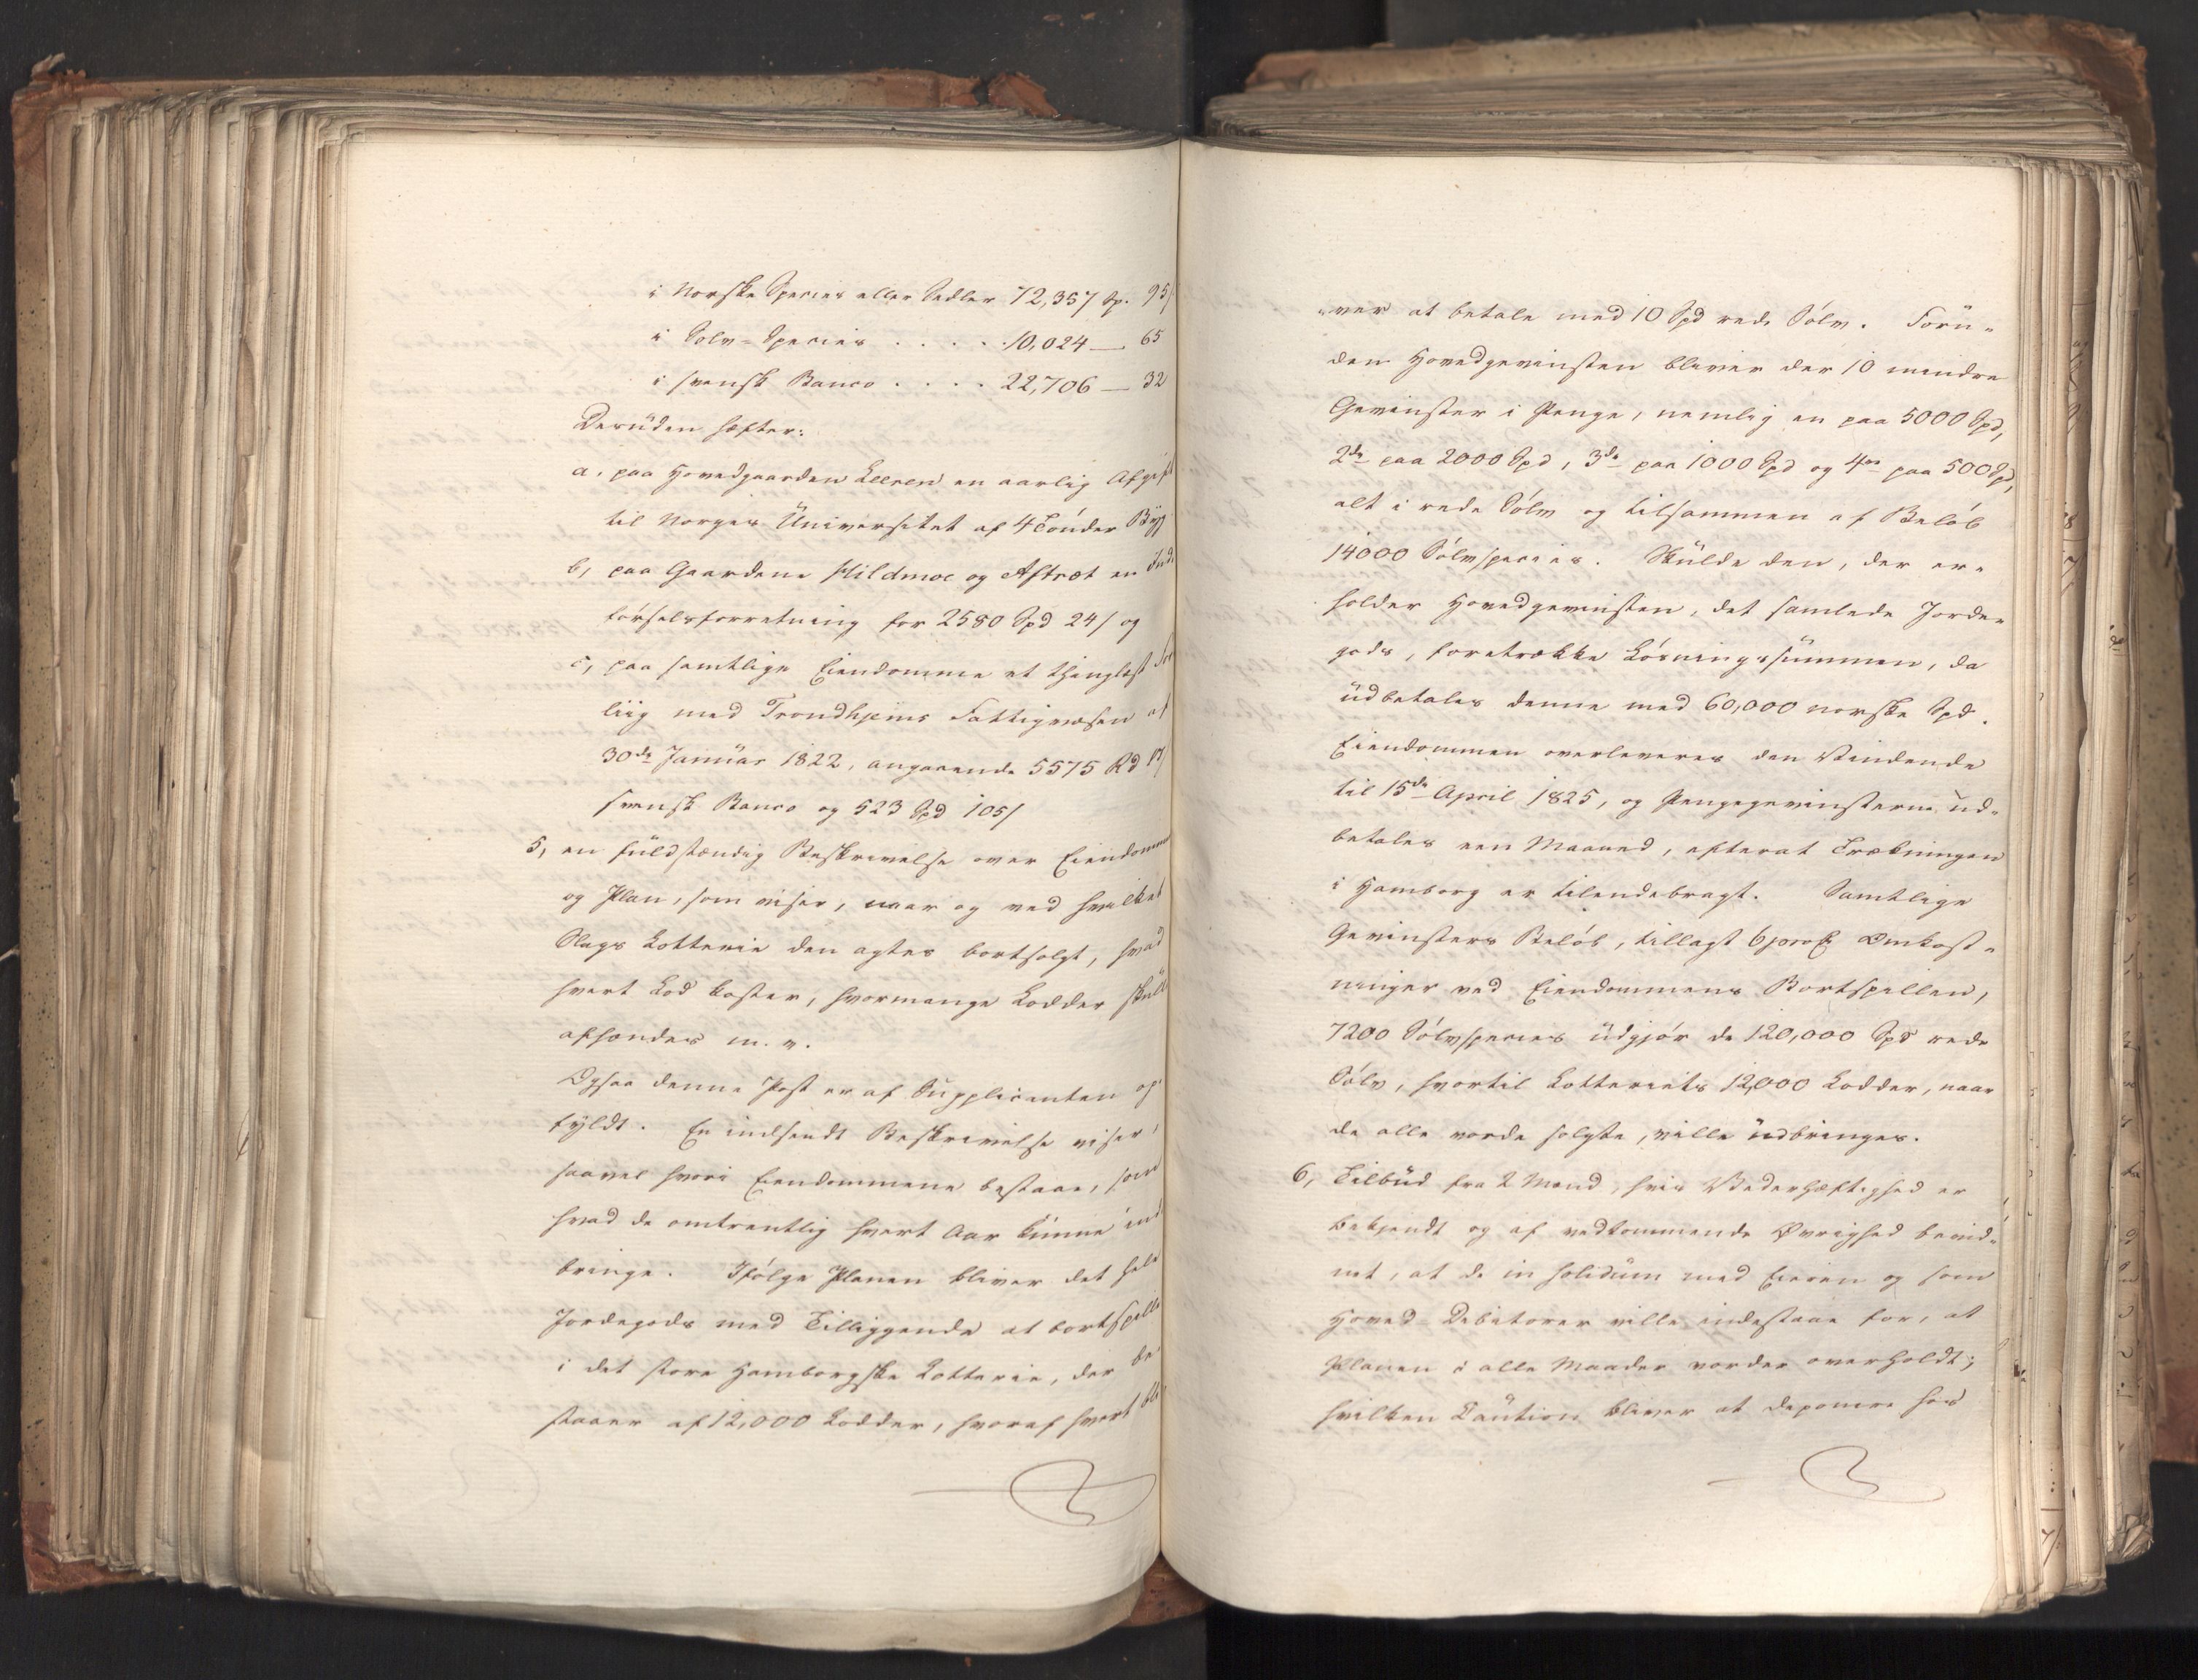 i Norske Species eller Sedler 72,357 Sp. 95/
i Sølv-Species . . . . . 10,024 — 65
i svensk Banco . . . . 22,706 — 32
Desüden hæfter:
a, paa Hovedgaarden Leeren en aarlig Afgift
til Norges Üniversitet af 4 Tønder Byg
b, paa Gaardene Hildmoe og Aftræt en Ind-
førselsforretning for 2580 Spd 24/ og
c, paa samtlige Eiendomme et thinglæst For
liig med Trondhjems Fattigvæsen af
30de Januar 1822, angaaende 5575 Rd
svensk Banco og 523 Spd 105/
5, en füldstændig Beskrivelse over Eiendommen
og Plan, som viser, naar og ved hvilket
Slags Lotterie den agtes bortsolgt, hvad
hvert Lod koster, hvormange Lodder skulle
afhændes m. v.
Ogsaa denne Post er af Supplicanten op-
fyldt. En indsendt Beskrivelse viser,
saavel hvori Eiendommene bestaae, som
hvad de omtrentlig hvert Aar kunne ind-
bringe. Ifølge Planen bliver det hele
Jordegods med Tilliggende at bortspille
i det store Hamborgske Lotterie, der be-
staaer af 12,000 Lodder, hvoraf hvert bli-
-ver at betale med 10 Spd rede Sølv. Forü-
den Hovedgevinsten bliver der 10 mindre
Gevinster i Penge, nemlig en paa 5000 Spd,
2de paa 2000 Spd, 3de paa 1000 Spd og 4re paa 500 Spd,
alt i rede Sølv og tilsammen af Beløb
14000 Sølvspecies. Skülde den, der er-
holder Hovedgevinsten, det samlede Jorde-
gods, foretrække Løsningssümmen, da
üdbetales denne med 60,000 norske Spd.
Eiendommen overleveres den Vindende
til 15de April 1825, og Pengegevinsterne üd-
betales een Maaned, efterat Trækningen
i Hamborg er tilendebragt. Samtlige
Gevinsters Beløb, tillagt 6 proC Omkost-
ninger ved Eiendommens Bortspillen,
7200 Sølvspecies üdgjør de 120,000 Spd rede
Sølv, hvortil Lotteriets 12,000 Lodder, naar
de alle vorde solgte, ville üdbringes.
6, Tilbüd fra 2 Mænd, hvis Vederhæftighed er
bekjendt og af vedkommende Øvrighed bevid-
net, at de in solidum med Eieren og som
Hoved Debitorer ville indestaae for, at
Planen i alle Maader vorder overholdt;
hvilken Caution bliver at deponere hos